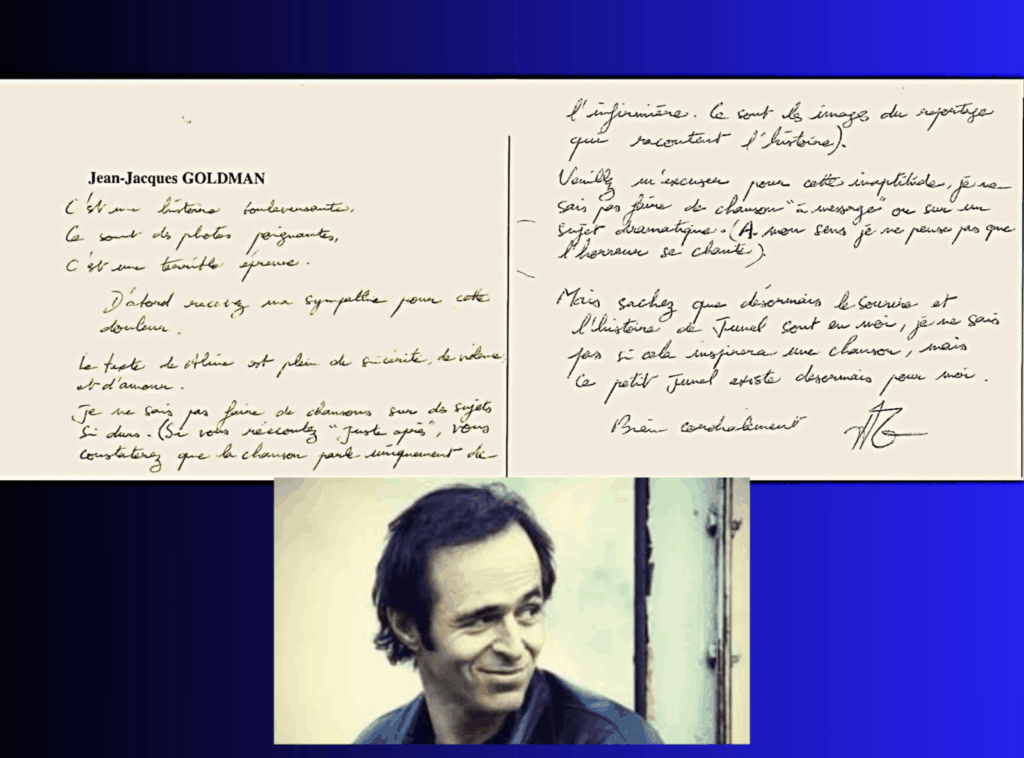 Jean-Jacques GOLDMAN
C'est une histoire bouleversante,
Ce sont des photos poignantes,
C'est une terrible épreuve.
D'abord recevez ma sympathie pour cette
douleur.
Le texte de Aline est plein de sincérité, de violence
et d'amour.
Je ne sais pas faire de chansons sur des sujets
si durs. (Si vous réécoutez "Juste après", vous
constaterez que la chanson parle uniquement de
l'infirmière. Ce sont les images du reportage
qui racontent l'histoire).
Veuillez m'excuser pour cette inaptitude, je ne
sais pas faire de chanson "à message" ou sur un
sujet dramatique. (A mon sens je ne pense pas que
l'horreur se chante).
Mais sachez que désormais le sourire et
l'histoire de Junel sont en moi, je ne sais
pas si cela inspirera une chanson, mais
ce petit Junel existe désormais pour moi.
Bien cordialement